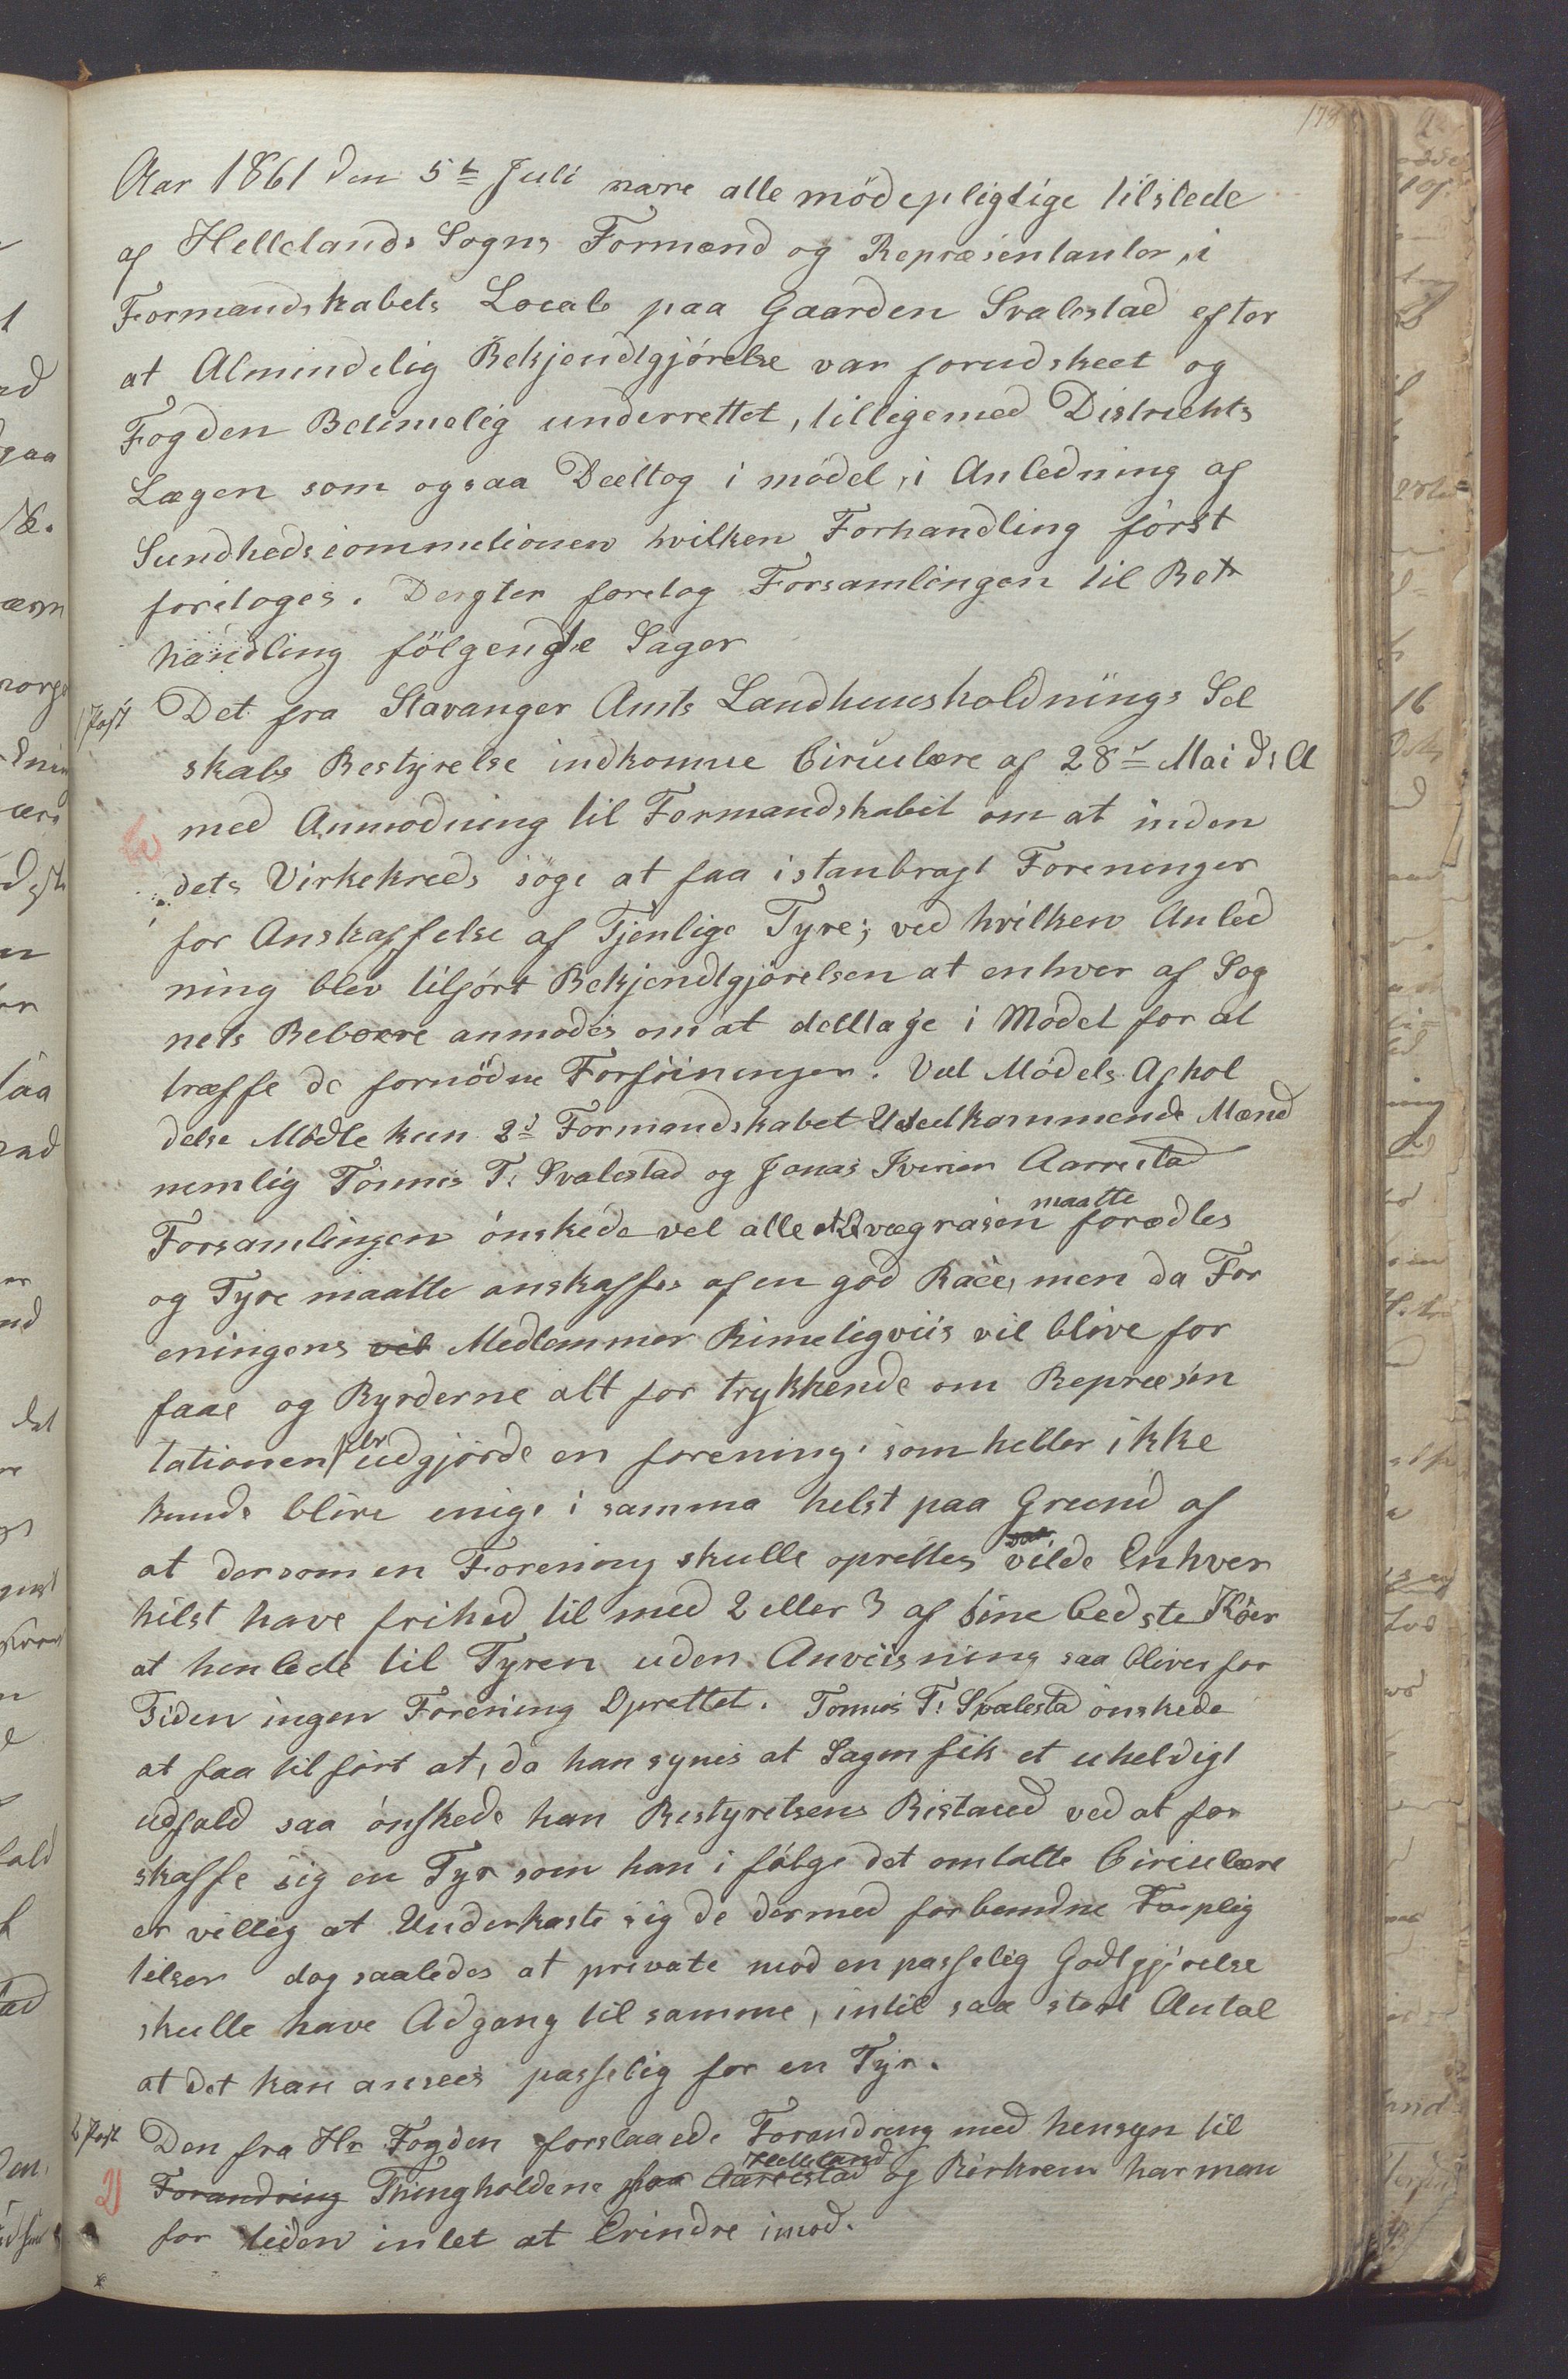 Aar 1861 den 5t Juli vare alle mödepligtige tilstede
af Hellelands Sogns Formænd og Repræsentanter, i
Formandskabets Locale paa Gaarden Svalestad efter
at Almindelig Bekjendtgjörelse var forudskeet og
Fogden Betimelig underrettet, tilligemed Distrikts
Lægen som ogsaa Deeltog i mödet, i Anledning af
Sundhedscommitionen hvilken Forhandling först
foretoges. Derefter foretog Forsamlingen til Be
handling fölgende Sager
1 Post Det fra Stavanger Amts Landhuusholdnings Sel
skabs Bestyrelse indkomne Circulære af 28de Mai d: A
med Anmodning til Formandskabet om at inden
dets Virkekreds söge at faa istanbragt Foreninger
for Anskaffelse af Tjenlige Tyre; ved hvilken Anled
ning blev tilfört Bekjendtgjörelsen at enhver af Sog
nets Beboere anmodes om at delltage i Mödet for at
træffe de fornödne Forföininger. Ved Mödets Aphol
delse Mödte kun 2de Formandskabet Uvedkommende Mænd
nemlig Tönnes T: Svalestad og Jonas Iversen Aarrestad
Forsamlingen önskede vel alle at Qvægrasen maatte forædles
og Tyre maatte anskaffes af en god Race, men da For
eningens vil Medlemmer Rimeligviis vil blive for
faae og Byrderne alt for trykkende om Repræsen
tationen udgjorde en forening, som heller ikke
kunde blive enige i samma helst paa Grund af
at dersom en Forening skulle oprettes vilde Enhver
helst have frihed til med 2 eller 3 af sine bedste Köer
at henlede til Tyren uden Anviisning saa bliver for
Tiden ingen Forening Oprettet. Tönnes T: Svalestad önskede
at faa tilfört at, da han synes at Sagen fik et uheldigt
udfald saa önskede han Bestyrelsens Bistand ved at for
skaffe sig en Tyr som han i fölge det omtalte Circulære
er villig at Underkaste sig de dermed forbundne Forplig
telser dog saaledes at private mod en passelig Godtgjörelse
skulle have Adgang til samme, intil saa stort Antal
at det kan ansees passelig for en Tyr.
2 Post Den fra Hr Fogden forslaaede Forandring med hensyn til
2) Forandring Thingholdene paa Aarrestad Helleland og Birkrem har man
for tiden intet at Erindre imod.